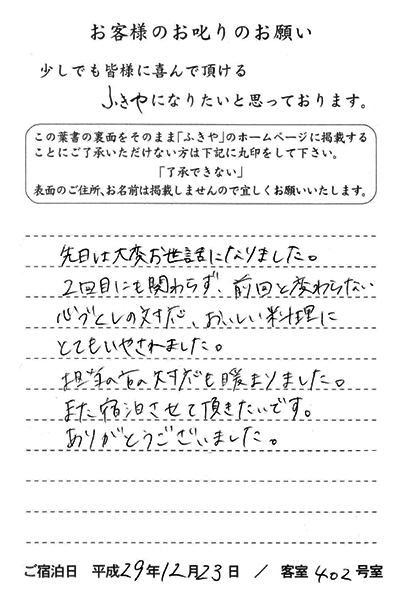 お客様のお叱りのお願い
少しでも皆様に喜んで頂ける
ふきやになりたいと思っております。
この葉書の裏面をそのまま「ふきや」のホームページに掲載する
ことにご了承いただけない方は下記に丸印をして下さい。
「了承できない」
表面のご住所、お名前は掲載しませんので宜しくお願いいたします。
先日は大変お世話になりました。
2回目にも関わらず、前回と変わらない
心づくしの対応、おいしい料理に
とてもいやされました。
担当の方の対応も暖まりました。
また宿泊させて頂きたいです。
ありがとうございました。
ご宿泊日 平成29年12月23日 / 客室402号室